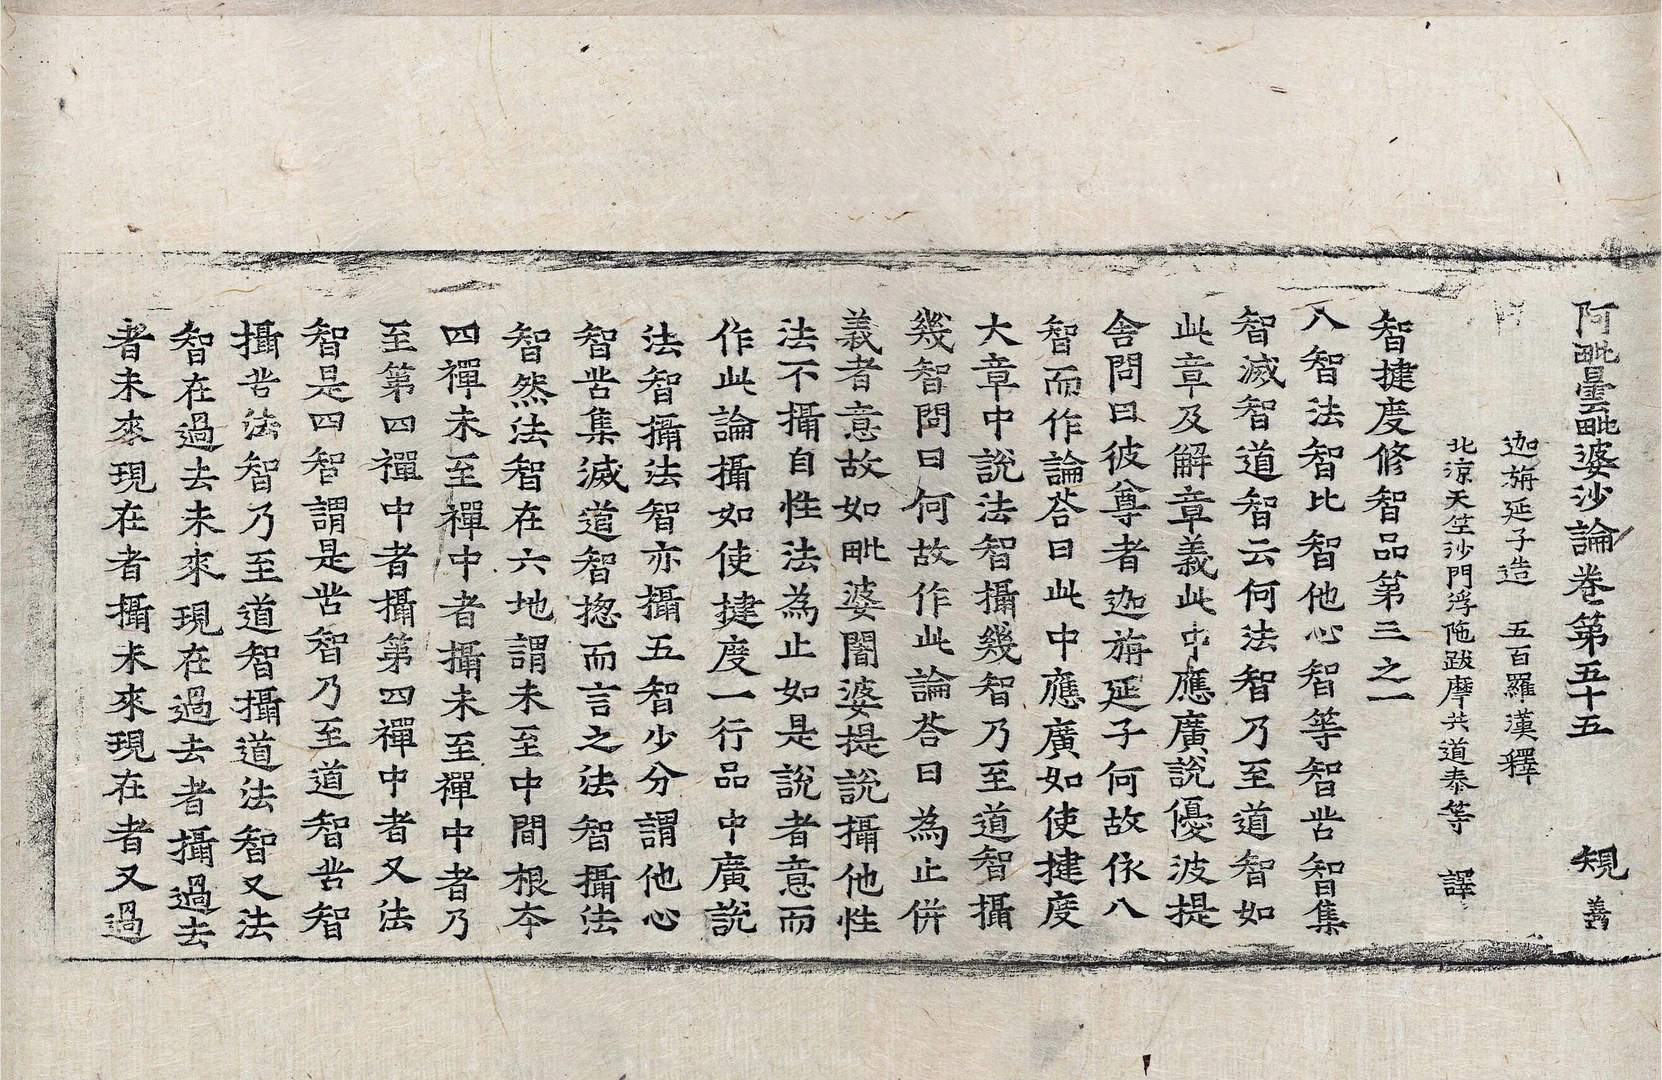 阿毗曇毗婆沙論卷第五十五 規
迦旃延子造 五百羅漢釋
北涼天竺沙門浮陁跋摩共道泰等 譯
智揵度修智品第三之一
八智法智比智他心智等智苦智集
智滅智道智云何法智乃至道智如
此章及解章義此中應廣說優波提
舍問曰彼尊者迦旃延子何故依八
智而作論荅曰此中應廣如使揵度
大章中說法智攝幾智乃至道智攝
幾智問曰何故作此論荅曰為止併
義者意故如毗婆闍婆提說攝他性
法不攝自性法為止如是說者意而
作此論攝如使揵度一行品中廣說
法智攝法智亦攝五智少分謂他心
智苦集滅道智揔而言之法智攝法
智然法智在六地謂未至中間根本
四禪未至禪中者攝未至禪中者乃
至第四禪中者攝第四禪中者又法
智是四智謂是苦智乃至道智苦智
攝苦法智乃至道智攝道法智又法
智在過去未來現在過去者攝過去
者未來現在者攝未來現在者又過